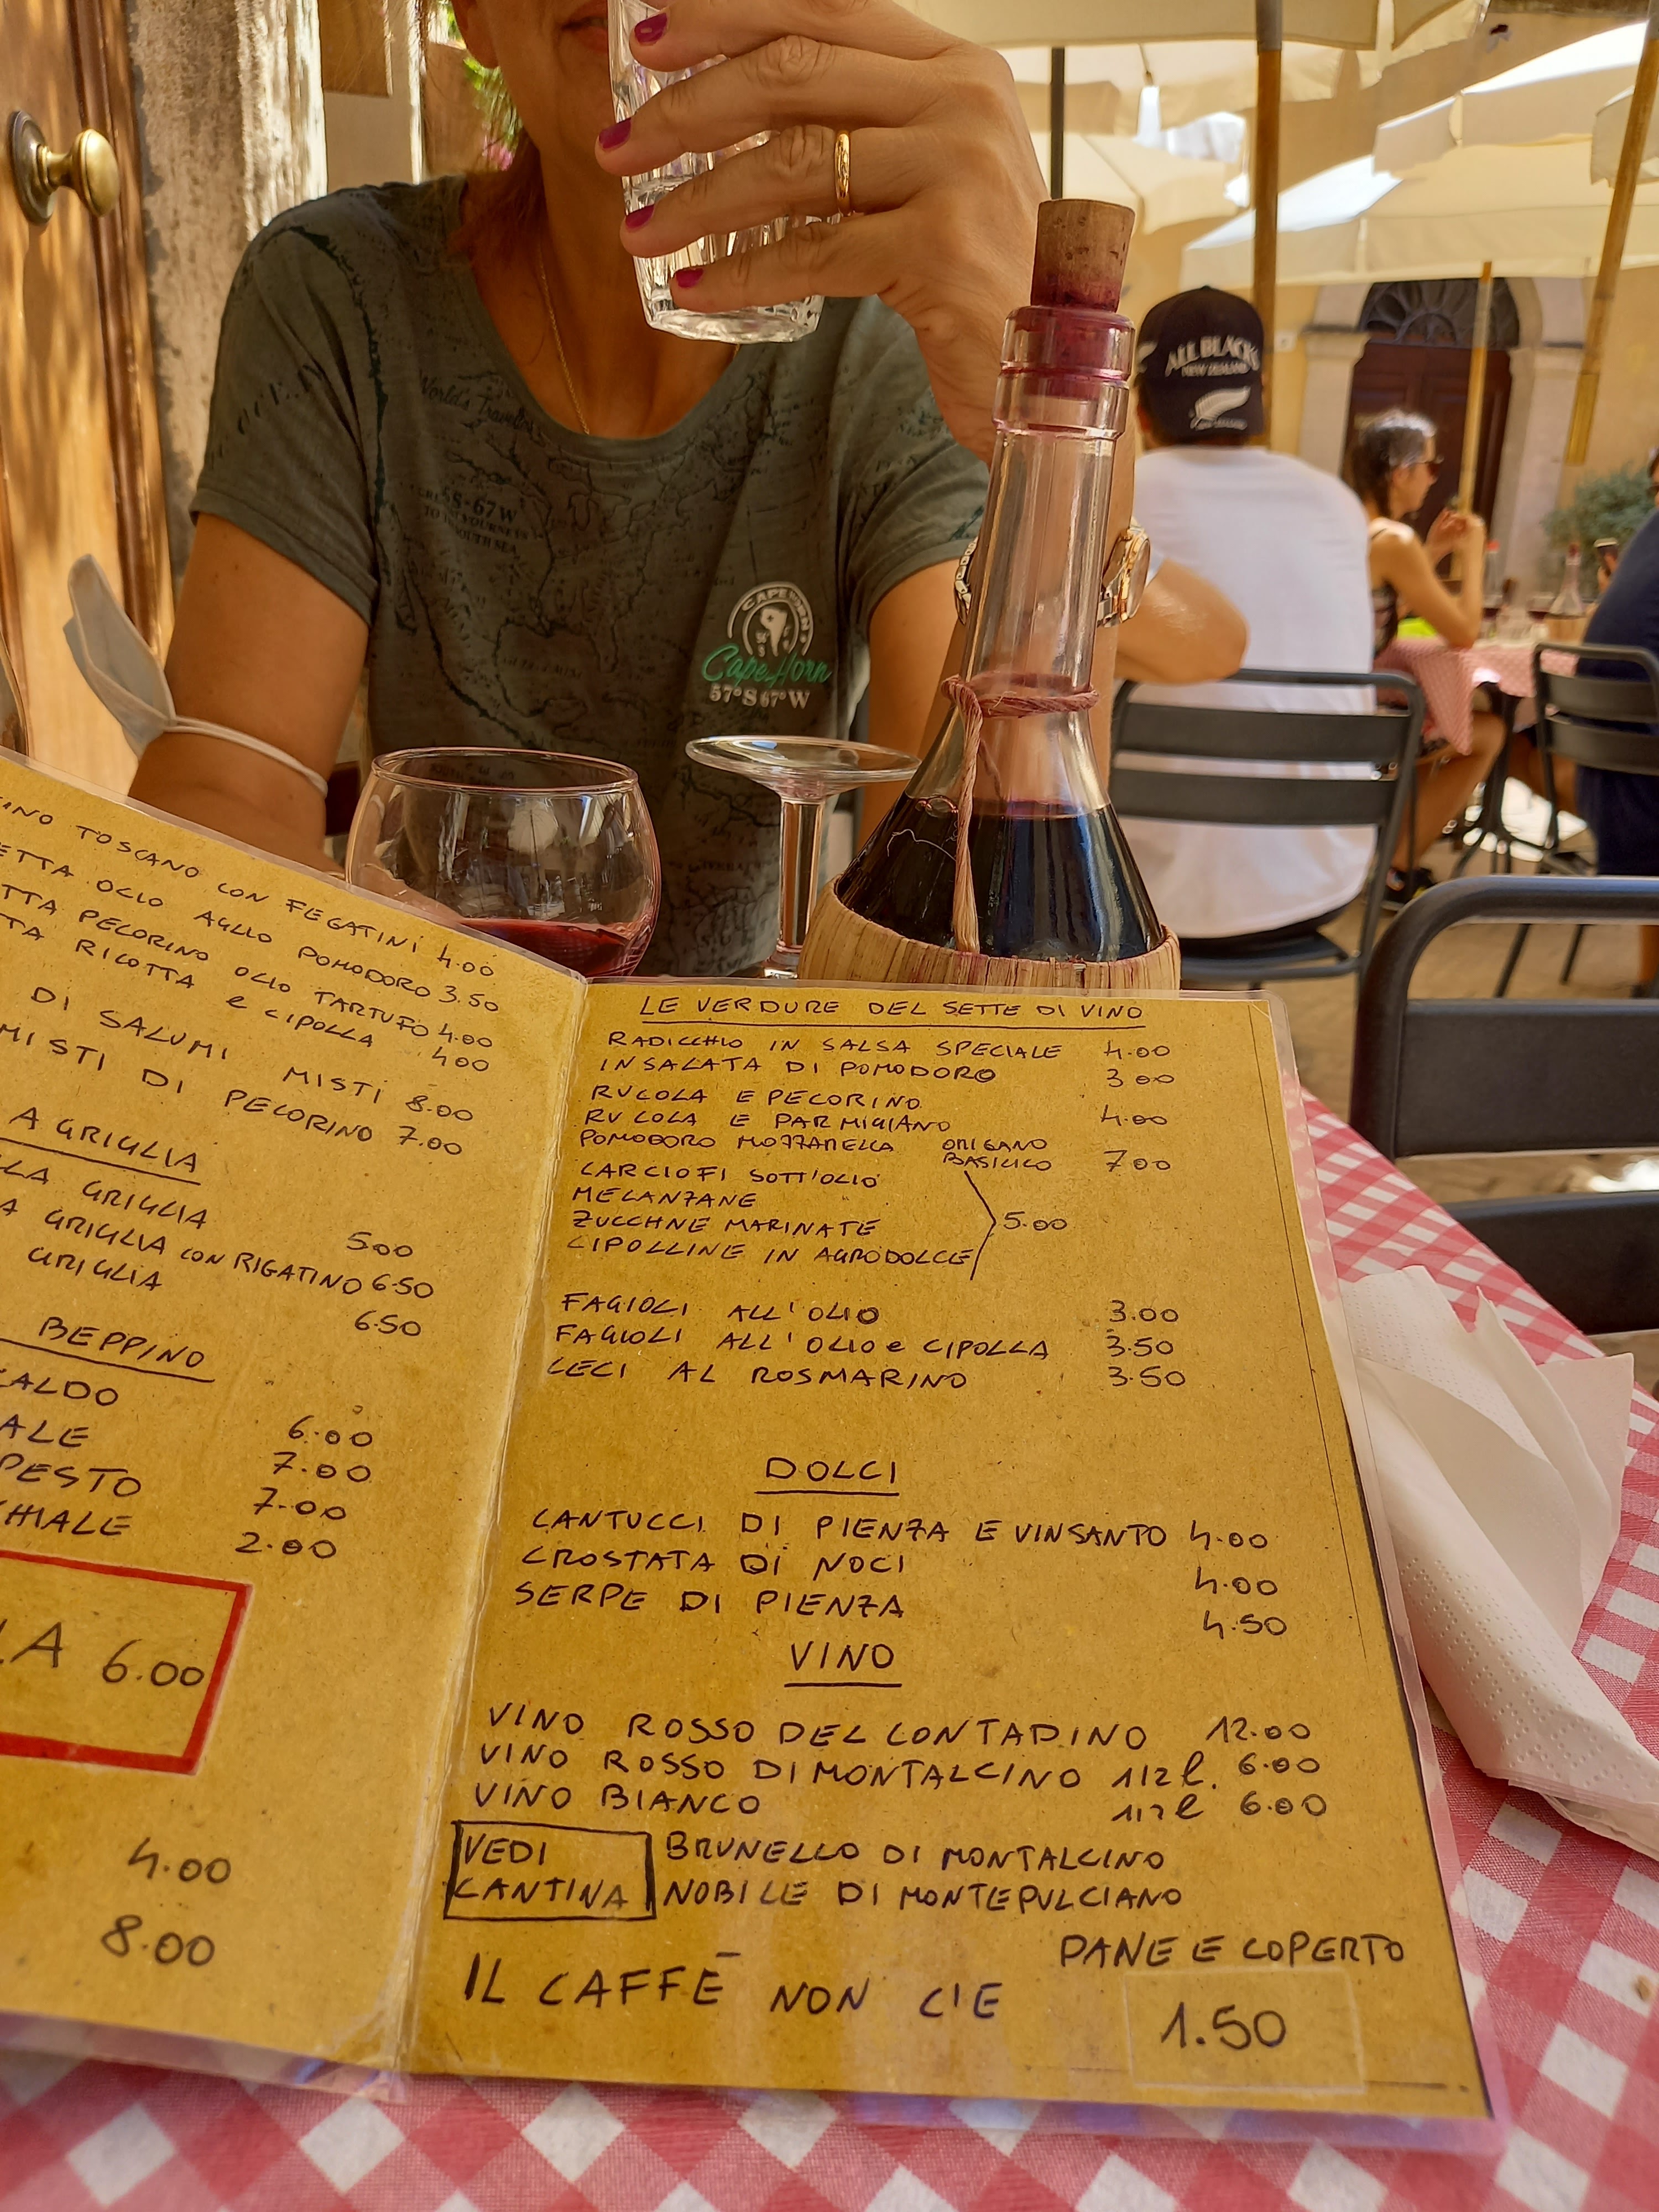 World's Traveller
OCEAN
55-67W
SOUTH SEA
CAPE HORN
Cape Horn
57°S 67°W
ALL BLACKS
NEW ZEALAND
TOSCANO CON FEGATINI 4.00
OLIO AGLIO POMODORO 3.50
PECORINO OLIO TARTUFO 4.00
RICOTTA e CIPOLLA 400
DI SALUMI MISTI 8.00
MISTI DI PECORINO 7.00
A GRIGLIA
GRIGLIA 500
GRIGLIA CON RIGATINO 6.50
GRIGLIA 6.50
BEPPINO
6.00
7.00
PESTO 7.00
2.00
6.00
4.00
8.00
LE VERDURE DEL SETTE DI VINO
RADICCHIO IN SALSA SPECIALE 4.00
INSALATA DI POMODORO 3 00
RUCOLA E PECORINO
RUCOLA E PARMIGIANO 4.00
POMODORO MOZZARELLA ORIGANO
BASILICO 700
CARCIOFI SOTT'OLIO
MELANZANE
ZUCCHNE MARINATE 5.00
CIPOLLINE IN AGRODOLCE
FAGIOLI ALL'OLIO 3.00
FAGIOLI ALL'OLIO e CIPOLLA 3.50
CECI AL ROSMARINO 3.50
DOLCI
CANTUCCI DI PIENZA E VINSANTO 4.00
CROSTATA DI NOCI 4.00
SERPE DI PIENZA 4.50
VINO
VINO ROSSO DEL CONTADINO 12.00
VINO ROSSO DI MONTALCINO 1/2 l. 6.00
VINO BIANCO 1/2 l 6.00
VEDI BRUNELLO DI MONTALCINO
CANTINA NOBILE DI MONTEPULCIANO
PANE E COPERTO
IL CAFFĒ NON C'E
1.50